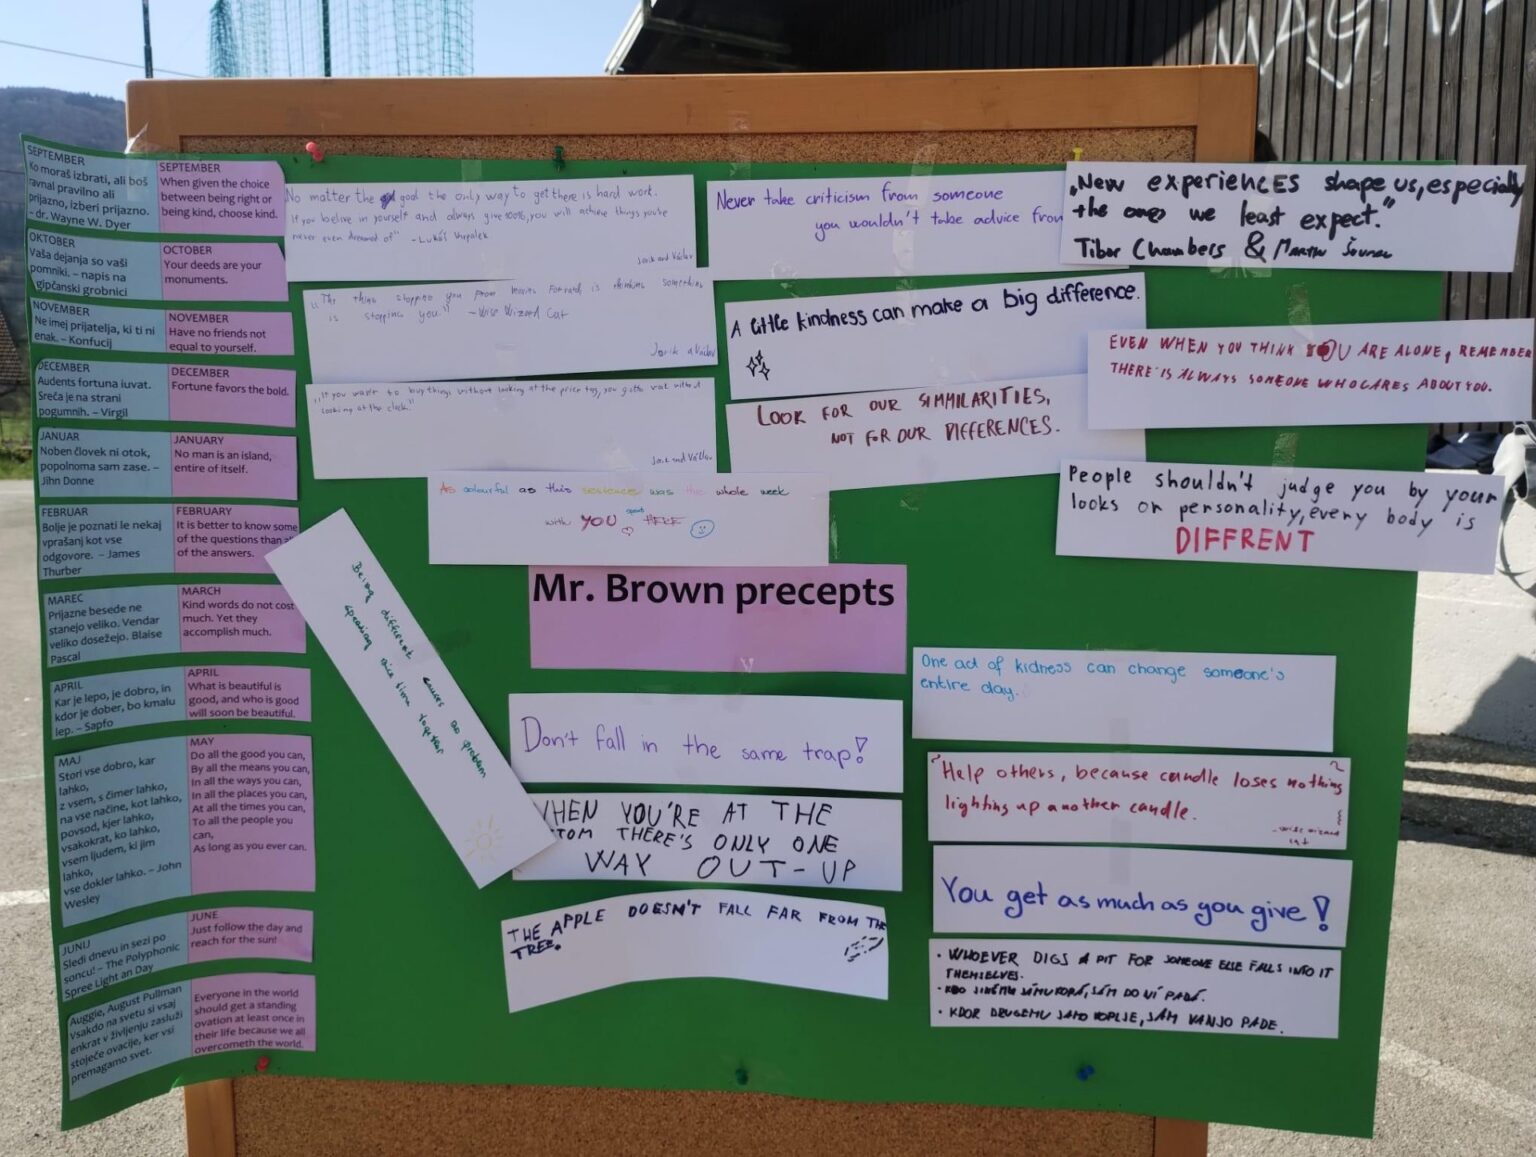 MAGIC
SEPTEMBER
Ko moraš izbrati, ali boš
ravnal pravilno ali
prijazno, izberi prijazno.
- dr. Wayne W. Dyer
SEPTEMBER
When given the choice
between being right or
being kind, choose kind.
OKTOBER
Vaša dejanja so vaši
pomniki. – napis na
gipčanski grobnici
OCTOBER
Your deeds are your
monuments.
NOVEMBER
Ne imej prijatelja, ki ti ni
enak. – Konfucij
NOVEMBER
Have no friends not
equal to yourself.
DECEMBER
Audents fortuna iuvat.
Sreča je na strani
pogumnih. – Virgil
DECEMBER
Fortune favors the bold.
JANUAR
Noben človek ni otok,
popolnoma sam zase. –
Jihn Donne
JANUARY
No man is an island,
entire of itself.
FEBRUAR
Bolje je poznati le nekaj
vprašanj kot vse
odgovore. – James
Thurber
FEBRUARY
It is better to know some
of the questions than
of the answers.
MAREC
Prijazne besede ne
stanejo veliko. Vendar
veliko dosežejo. Blaise
Pascal
MARCH
Kind words do not cost
much. Yet they
accomplish much.
APRIL
Kar je lepo, je dobro, in
kdor je dober, bo kmalu
lep. – Sapfo
APRIL
What is beautiful is
good, and who is good
will soon be beautiful.
MAJ
Stori vse dobro, kar
lahko,
z vsem, s čimer lahko,
na vse načine, kot lahko,
povsod, kjer lahko,
vsakokrat, ko lahko,
vsem ljudem, ki jim
lahko,
vse dokler lahko. – John
Wesley
MAY
Do all the good you can,
By all the means you can,
In all the ways you can,
In all the places you can,
At all the times you can,
To all the people you
can,
As long as you ever can.
JUNIJ
Sledi dnevu in sezi po
soncu! – The Polyphonic
Spree Light an Day
JUNE
Just follow the day and
reach for the sun!
Auggie, August Pullman
Vsakdo na svetu si vsaj
enkrat v življenju zasluži
stoječe ovacije, ker vsi
premagamo svet.
Everyone in the world
should get a standing
ovation at least once in
their life because we all
overcometh the world.
No matter the goal the only way to get there is hard work.
If you believe in yourself and always give 100%, you will achieve things you've
never even dreamed of" - Lukáš
Jarik and Václav
"The thing stopping you from moving forward, is thinking something
is stopping you." ~Wise Wizard Cat
Jarik a Václav
"If you want to buy things without looking at the price tag, you gotta work without
looking at the clock."
Jarik and Václav
As colourful as this sentence was the whole week
spent
with YOU HERE
Being different causes no problem
spending nice time together
Mr. Brown precepts
Never take criticism from someone
you wouldn't take advice from
A little kindness can make a big difference.
LOOK FOR OUR SIMMILARITIES,
NOT FOR OUR DIFFERENCES.
„New experiences shape us, especially
the ones we least expect."
Tibor Chambers & Martin
EVEN WHEN YOU THINK YOU ARE ALONE, REMEMBER
THERE IS ALWAYS SOMEONE WHO CARES ABOUT YOU.
People shouldn't judge you by your
looks or personality, every body is
DIFFRENT
Don't fall in the same trap!
WHEN YOU'RE AT THE
TOM THERE'S ONLY ONE
WAY OUT-UP
THE APPLE DOESN'T FALL FAR FROM THE
TREE.
One act of kidness can change someone's
entire day.
"Help others, because candle loses nothing
lighting up another candle."
-wise wizard
cat
You get as much as you give!
• WHOEVER DIGS A PIT FOR SOMEONE ELSE FALLS INTO IT
THEMSELVES.
• KDO JINÉMU JÁMU KOPÁ, SÁM DO NÍ PADÁ.
• KDOR DRUGEMU JAMO KOPLJE, SAM VANJO PADE.